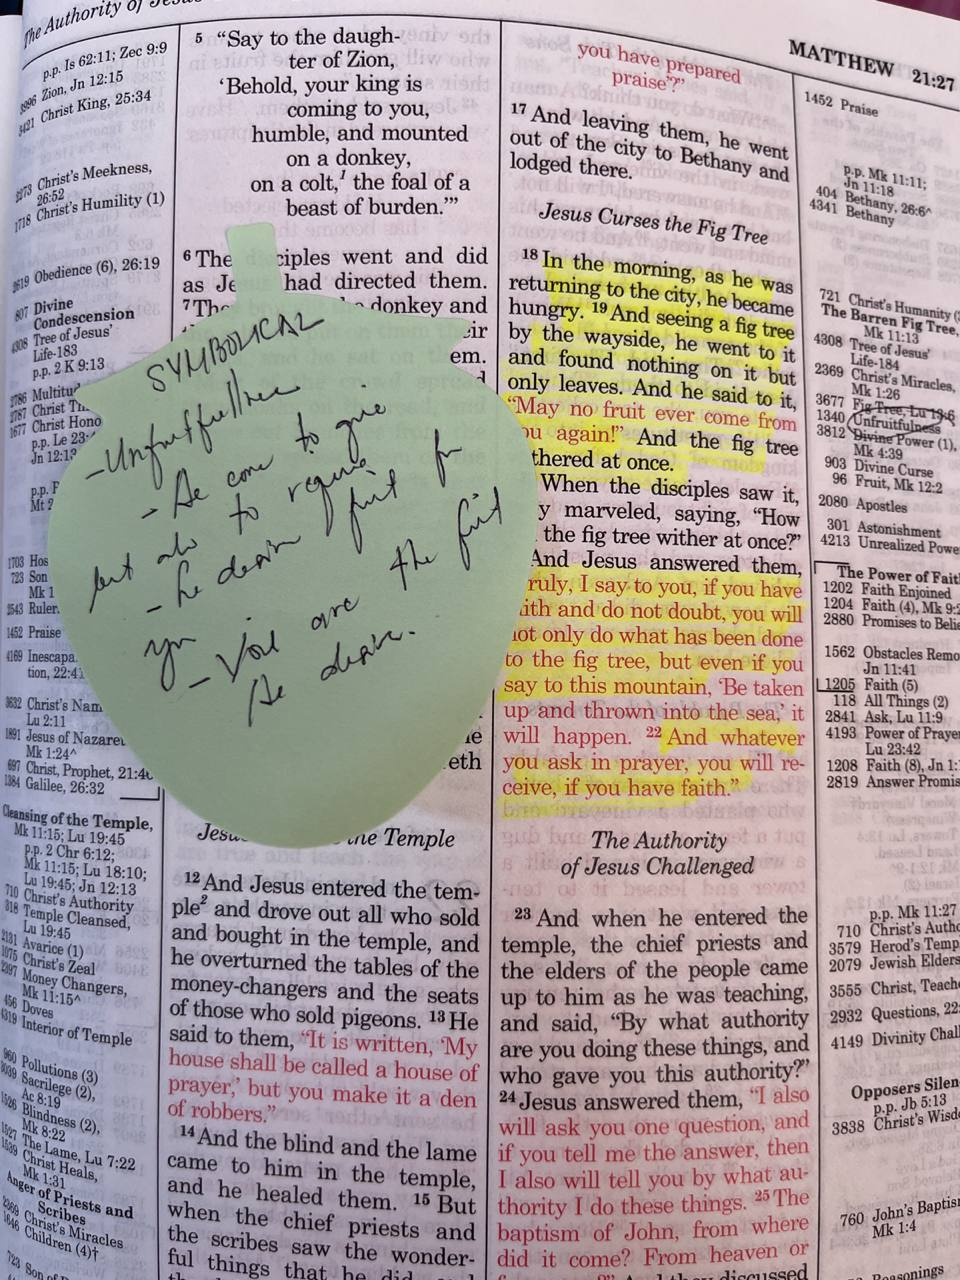 The Authority of Jesus
MATTHEW 21:27
p.p. Is 62:11; Zec 9:9
3996 Zion, Jn 12:15
3421 Christ King, 25:34
Christ's Meekness,
26:52
1718 Christ's Humility (1)
2619 Obedience (6), 26:19
807 Divine
Condescension
4308 Tree of Jesus'
Life-183
p.p. 2 K 9:13
2786 Multitud
2787 Christ Th
1677 Christ Hono
p.p. Le 23:
Jn 12:13
p.p. P
Mt 2
1703 Hos
723 Son
Mk 1
2543 Ruler
1452 Praise
4169 Inescapa
tion, 22:4
3632 Christ's Nam
Lu 2:11
1891 Jesus of Nazaret
Mk 1:24^
697 Christ, Prophet, 21:4
1384 Galilee, 26:32
Cleansing of the Temple,
Mk 11:15; Lu 19:45
p.p. 2 Chr 6:12;
Mk 11:15; Lu 18:10;
Lu 19:45; Jn 12:13
710 Christ's Authority
818 Temple Cleansed,
Lu 19:45
2131 Avarice (1)
1075 Christ's Zeal
2397 Money Changers,
Mk 11:15^
456 Doves
4319 Interior of Temple
960 Pollutions (3)
3039 Sacrilege (2),
Ac 8:19
1526 Blindness (2),
Mk 8:22
1527 The Lame, Lu 7:22
1539 Christ Heals,
Mk 1:31
Anger of Priests and
Scribes
2369 Christ's Miracles
1646 Children (4)†
723 Son of
5 “Say to the daugh-
ter of Zion,
‘Behold, your king is
coming to you,
humble, and mounted
on a donkey,
on a colt,1 the foal of a
beast of burden.’”
6 The ciples went and did
as Je had directed them.
7 The donkey and
eir
em.
d
SYMBOLICAL
- Unfruitfullnes
- He come to give
but also to require
- he desire fruit for
you
- You are the fruit
He desire.
le
eth
Jesu the Temple
12 And Jesus entered the tem-
ple2 and drove out all who sold
and bought in the temple, and
he overturned the tables of the
money-changers and the seats
of those who sold pigeons. 13 He
said to them, “It is written, ‘My
house shall be called a house of
prayer,’ but you make it a den
of robbers.”
14 And the blind and the lame
came to him in the temple,
and he healed them. 15 But
when the chief priests and
the scribes saw the wonder-
ful things that he did, and
you have prepared
praise’?”
17 And leaving them, he went
out of the city to Bethany and
lodged there.
Jesus Curses the Fig Tree
18 In the morning, as he was
returning to the city, he became
hungry. 19 And seeing a fig tree
by the wayside, he went to it
and found nothing on it but
only leaves. And he said to it,
“May no fruit ever come from
ou again!” And the fig tree
thered at once.
When the disciples saw it,
y marveled, saying, “How
the fig tree wither at once?”
And Jesus answered them,
ruly, I say to you, if you have
ith and do not doubt, you will
not only do what has been done
to the fig tree, but even if you
say to this mountain, ‘Be taken
up and thrown into the sea,’ it
will happen. 22 And whatever
you ask in prayer, you will re-
ceive, if you have faith.”
The Authority
of Jesus Challenged
23 And when he entered the
temple, the chief priests and
the elders of the people came
up to him as he was teaching,
and said, “By what authority
are you doing these things, and
who gave you this authority?”
24 Jesus answered them, “I also
will ask you one question, and
if you tell me the answer, then
I also will tell you by what au-
thority I do these things. 25 The
baptism of John, from where
did it come? From heaven or
discussed
1452 Praise
p.p. Mk 11:11;
Jn 11:18
404 Bethany, 26:6^
4341 Bethany
721 Christ's Humanity (
The Barren Fig Tree,
Mk 11:13
4308 Tree of Jesus'
Life-184
2369 Christ's Miracles,
Mk 1:26
3677 Fig Tree, Lu 19:6
1340 Unfruitfulness
3812 Divine Power (1),
Mk 4:39
903 Divine Curse
96 Fruit, Mk 12:2
2080 Apostles
301 Astonishment
4213 Unrealized Powe
The Power of Fait
1202 Faith Enjoined
1204 Faith (4), Mk 9:2
2880 Promises to Belie
1562 Obstacles Remo
Jn 11:41
1205 Faith (5)
118 All Things (2)
2841 Ask, Lu 11:9
4193 Power of Prayer
Lu 23:42
1208 Faith (8), Jn 1:
2819 Answer Promis
p.p. Mk 11:27
710 Christ's Autho
3579 Herod's Temp
2079 Jewish Elders
3555 Christ, Teache
2932 Questions, 22:
4149 Divinity Chal
Opposers Silen
p.p. Jb 5:13
3838 Christ's Wisd
760 John's Baptis
Mk 1:4
Reasonings